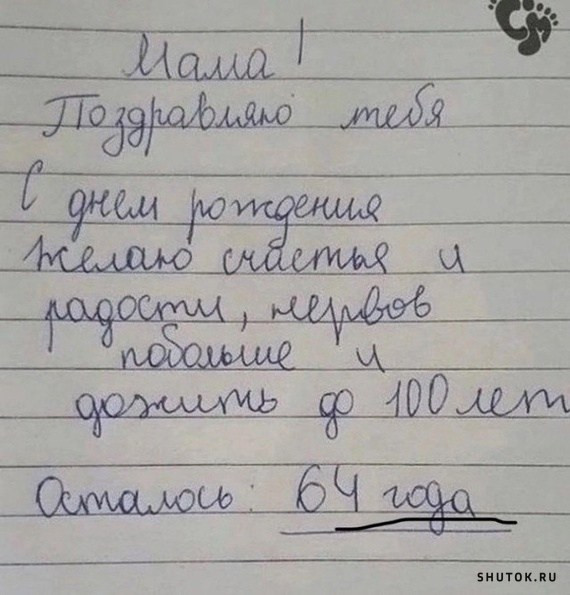 Мама!
Поздравляю тебя
С днем рождения
желаю счастья и
радости, нервов
побольше и
дожить до 100 лет
Осталось: 64 года
СМ
SHUTOK.RU